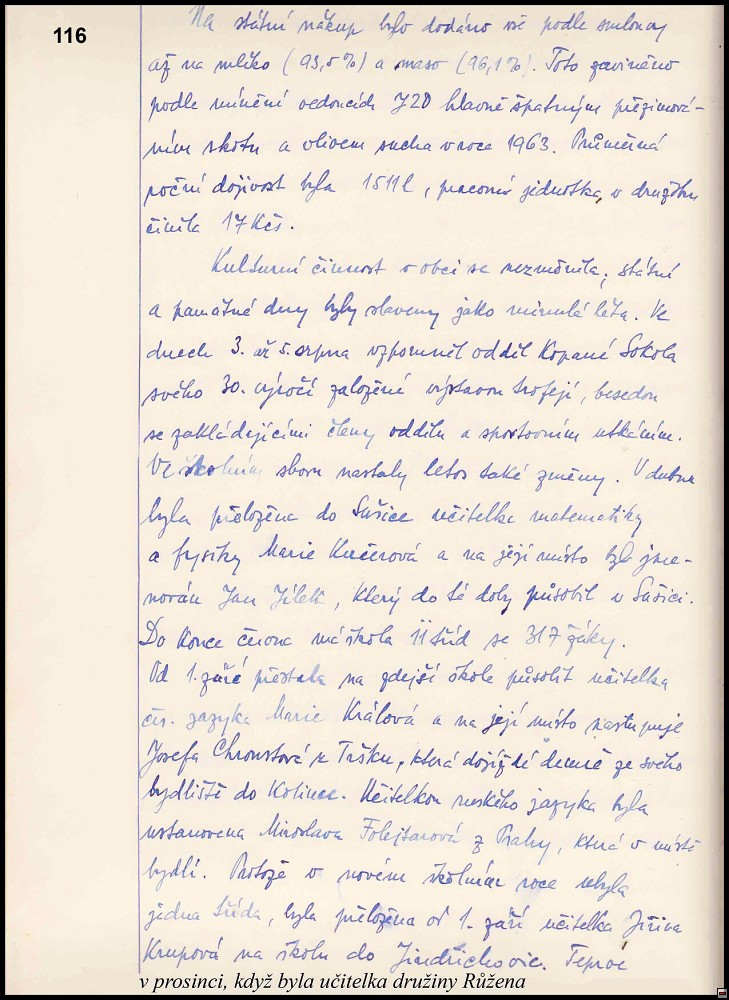 116
Na státní nákup bylo dodáno vše podle smlouvy
až na mléko (93,5%) a maso (96,1%). Toto zaviněno
podle mínění vedoucích JZD hlavně špatným přezimová-
ním skotu a vlivem sucha v roce 1963. Průměrná
roční dojivost byla 1511 l, pracovní jednotka v družstvu
činila 17 Kčs.
Kulturní činnost v obci se nezměnila, státní
a památné dny byly slaveny jako minulá léta. Ve
dnech 3. až 5. srpna vzpomněl oddíl Kopané Sokola
svého 30. výročí založení výstavou trofejí, besedou
se zakládajícími členy oddílu a sportovním utkáním.
Ve školním sboru nastaly letos také změny. V dubnu
byla přeložena do Sušice učitelka matematiky
a fysiky Marie Kučerová a na její místo byl jme-
nován Jan Jílek, který do té doby působil v Sušici.
Do konce června má škola 11 tříd se 317 žáky.
Od 1. září přestala na zdejší škole působit učitelka
čes. jazyka Marie Králová a na její místo nastupuje
Josefa Chroustová z Tažku, která dojíždí denně ze svého
bydliště do Kolince. Učitelkou ruského jazyka byla
ustanovena Miroslava Folejtarová z Prahy, která v místě
bydlí. Protože v novém školním roce ubyla
jedna třída, byla přeložena od 1. září učitelka Jiřina
Krupová na školu do Jindřichovic. Teprve
v prosinci, když byla učitelka družiny Růžena